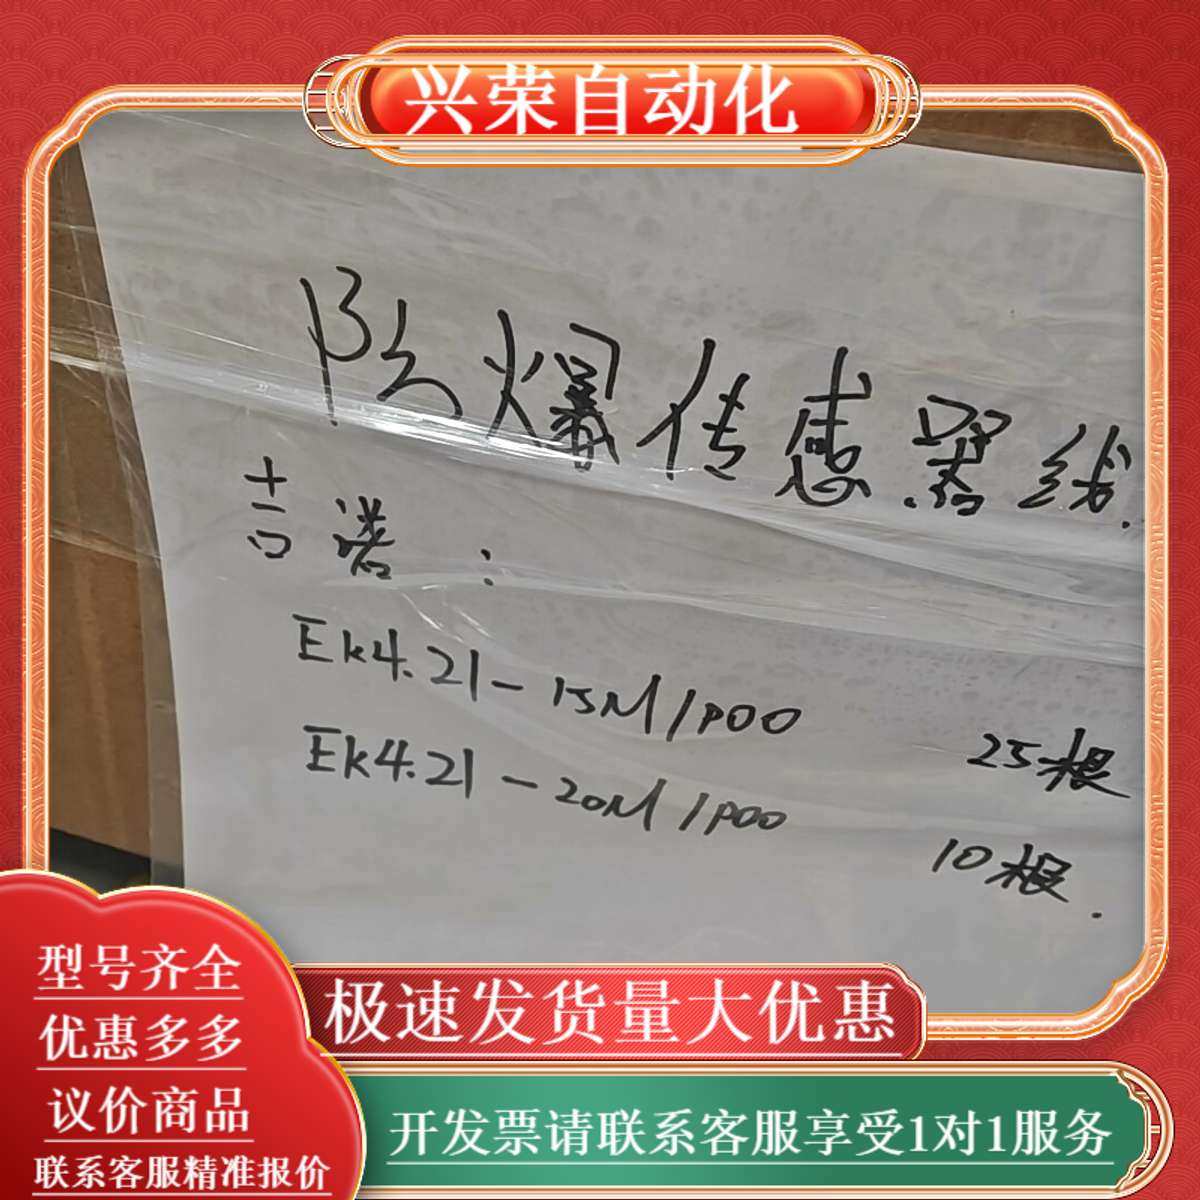 兴荣自动化
防爆传感器线
吉诺：
EK4.21-15M/P00 25根
EK4.21-20M/P00 10根.
型号齐全
优惠多多
议价商品
联系客服精准报价
极速发货量大优惠
开发票请联系客服享受1对1服务